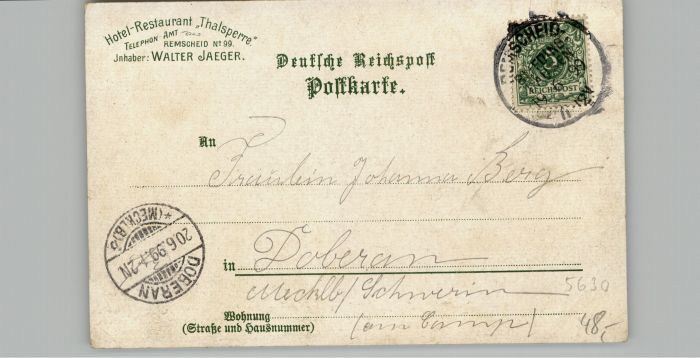 Hotel-Restaurant „Thalsperre“
TELEPHON AMT
REMSCHEID No 99.
Jnhaber: WALTER JAEGER.
Deutsche Reichspost
Postkarte.
REMSCHEID
REICHSPOST
An
Fräulein Johanna Berg
in Doberan
Mecklb/Schwerin
5630
Wohnung
(Straße und Hausnummer)
(am Camp)
48,-
DOBERAN
*(MECKLB.)*
20.6.99. 1-2N